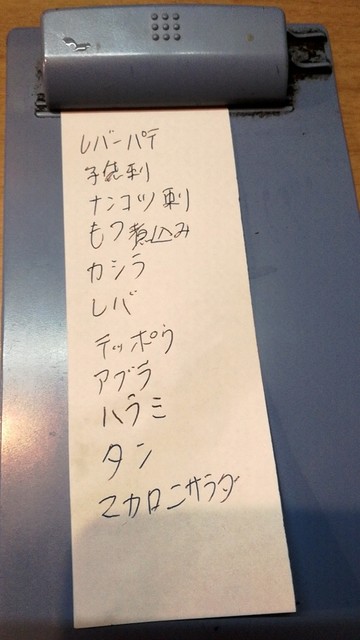 レバーパテ
子袋刺
ナンコツ刺
もつ煮込み
カシラ
レバ
テッポウ
アブラ
ハラミ
タン
マカロニサラダ